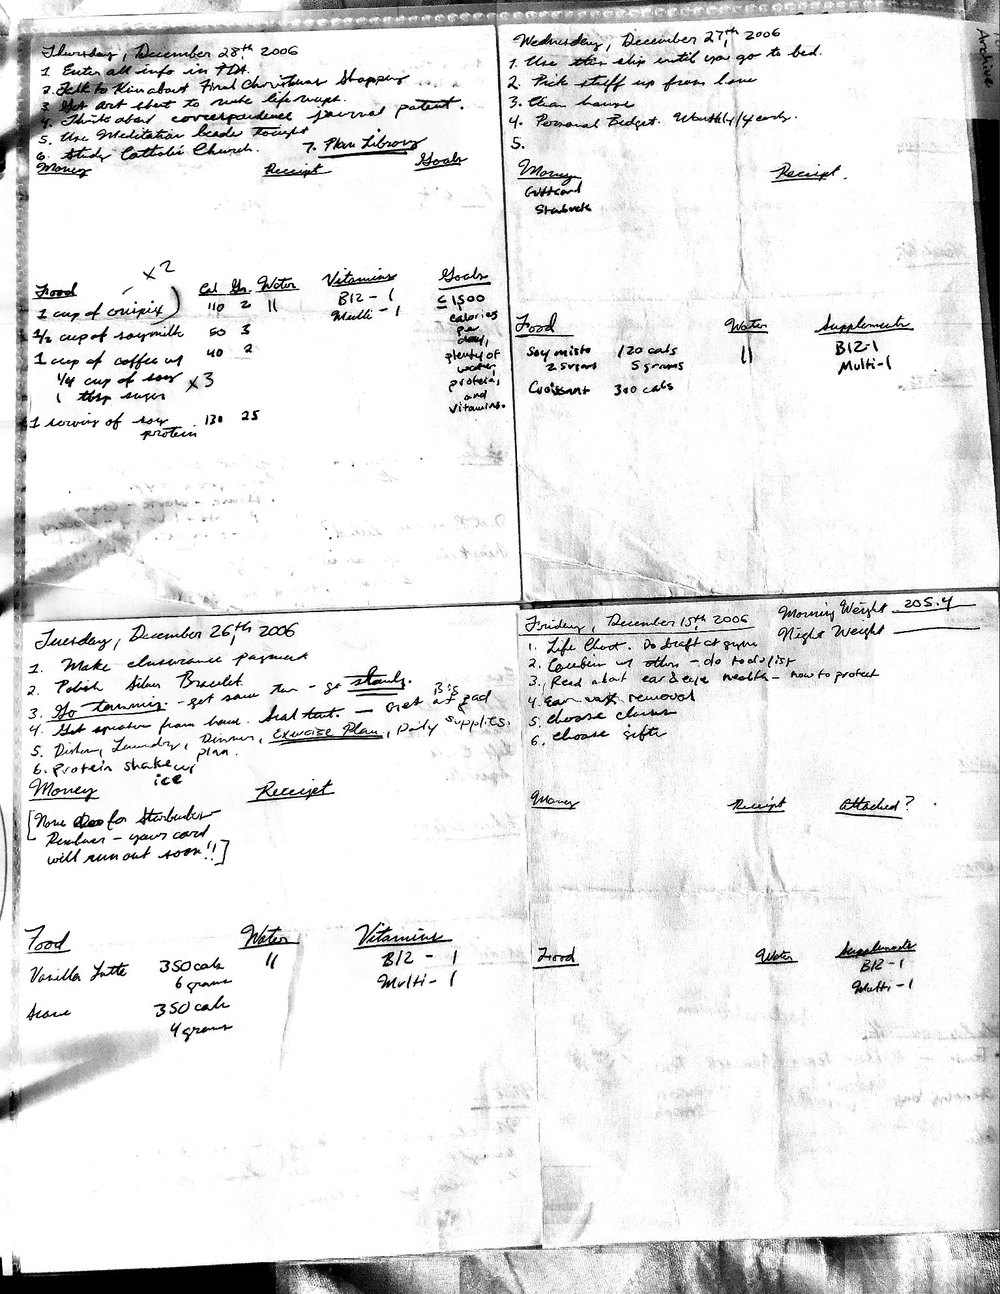 Thursday, December 28th, 2006
1. Enter all info in PDA.
2. Talk to Kim about Final Christmas Shopping
3. Get art shirt to make life maps.
4. Think about correspondence journal patent.
5. Use Meditation beads tonight
6. Study Catholic Church. 7. Plan Library
Money Receipt Goals
Food Cal Gr. Water Vitamins Goals
x2
1 cup of crispix 110 2 11 B12 - 1 ≤1500
Multi - 1 calories
1/2 cup of soymilk 50 3 per
day,
1 cup of coffee w/ 40 2 plenty of
1/4 cup of soy x3 water,
1 tbsp sugar protein,
and
vitamins.
1 serving of soy 130 25
protein
Wednesday, December 27th, 2006
1. Use this slip until you go to bed.
2. Pick stuff up from
3. Clean house
4. Personal Budget. Monthly/Yearly.
5.
Money Receipt.
Giftcard
Starbucks
Food Water Supplements
Soy misto 120 cals 11 B12-1
2 sugars 5 grams Multi-1
Croissant 300 cals
Tuesday, December 26th, 2006
1. Make insurance payment
2. Polish Silver Bracelet
3. Go tanning. - get some tan - go slowly.
4. Get speaker from - Big
5. Dishes, Laundry, Dinner, Exercise Plan, Daily supplies.
plan.
6. Protein shake w/
ice
Money Receipt
[None for Starbucks
Reminder - your card
will run out soon!!]
Food Water Vitamins
Vanilla Latte 350 cals 11 B12 - 1
6 grams Multi - 1
Scone 350 cals
4 grams
Friday, December 15th, 2006 Morning Weight 205.4
Night Weight
1. Life Chart. Do draft at gym
2. Combine w/ others - do todo list
3. Read about ear & eye health - how to protect
4. Ear wax removal
5. Choose
6. Choose gifts
Money Receipt Attached?
Food Water Supplements
B12 - 1
Multi - 1
Archive